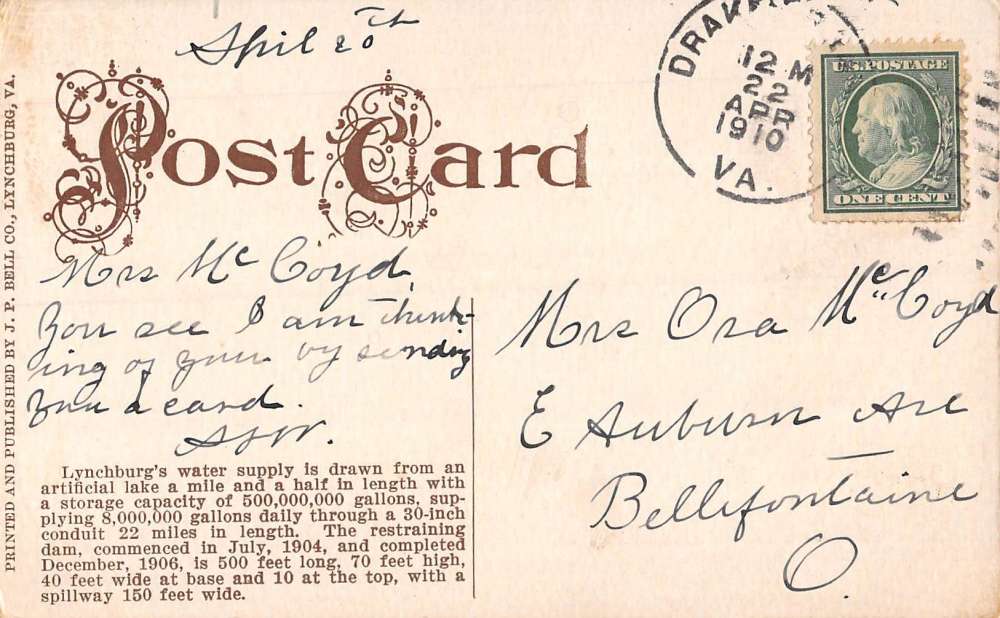 April 20th
Post Card
PRINTED AND PUBLISHED BY J. P. BELL CO., LYNCHBURG, VA.
12 M
22
APR
1910
VA.
U.S. POSTAGE
ONE CENT
Mrs Mc Coyd,
You see I am think-
ing of you by sending
you a card.
Lynchburg's water supply is drawn from an
artificial lake a mile and a half in length with
a storage capacity of 500,000,000 gallons, sup-
plying 8,000,000 gallons daily through a 30-inch
conduit 22 miles in length. The restraining
dam, commenced in July, 1904, and completed
December, 1906, is 500 feet long, 70 feet high,
40 feet wide at base and 10 at the top, with a
spillway 150 feet wide.
Mrs Ora McCoyd
E Auburn Ave
Bellefontaine
O.